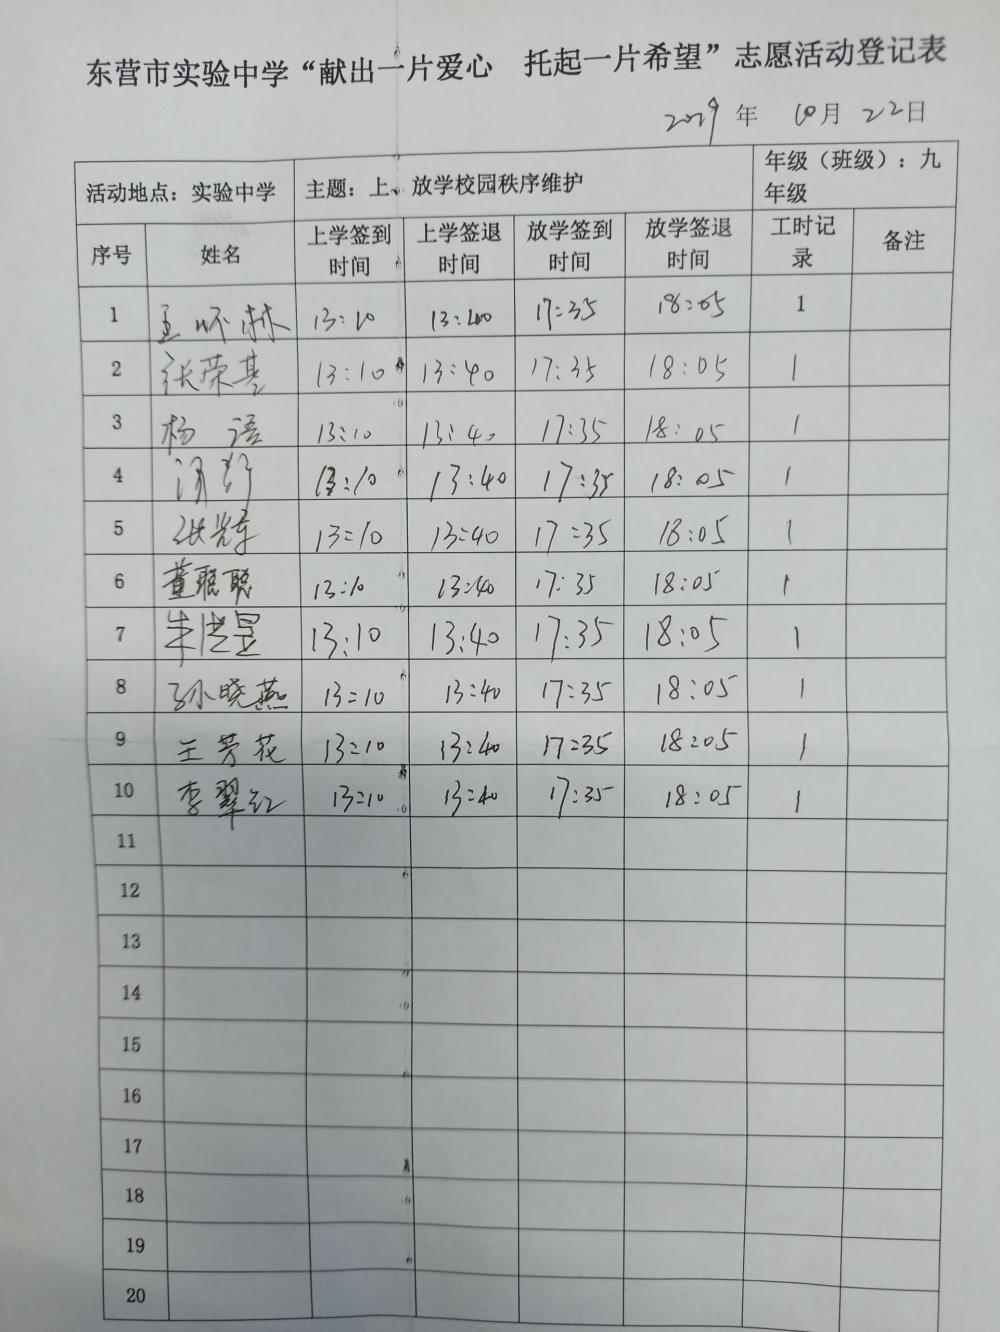 东营市实验中学“献出一片爱心 托起一片希望”志愿活动登记表
年 10月 22日
活动地点：实验中学 主题：上、放学校园秩序维护 年级（班级）：九年级
序号 姓名 上学签到时间 上学签退时间 放学签到时间 放学签退时间 工时记录 备注
1 13:10 13:40 17:35 18:05 1
2 张荣基 13:10 13:40 17:35 18:05 1
3 杨语 13:10 13:40 17:35 18:05 1
4 13:10 13:40 17:35 18:05 1
5 13:10 13:40 17:35 18:05 1
6 董聪聪 13:10 13:40 17:35 18:05 1
7 朱洪昱 13:10 13:40 17:35 18:05 1
8 孙晓燕 13:10 13:40 17:35 18:05 1
9 王芳花 13:10 13:40 17:35 18:05 1
10 李翠红 13:10 13:40 17:35 18:05 1
11
12
13
14
15
16
17
18
19
20